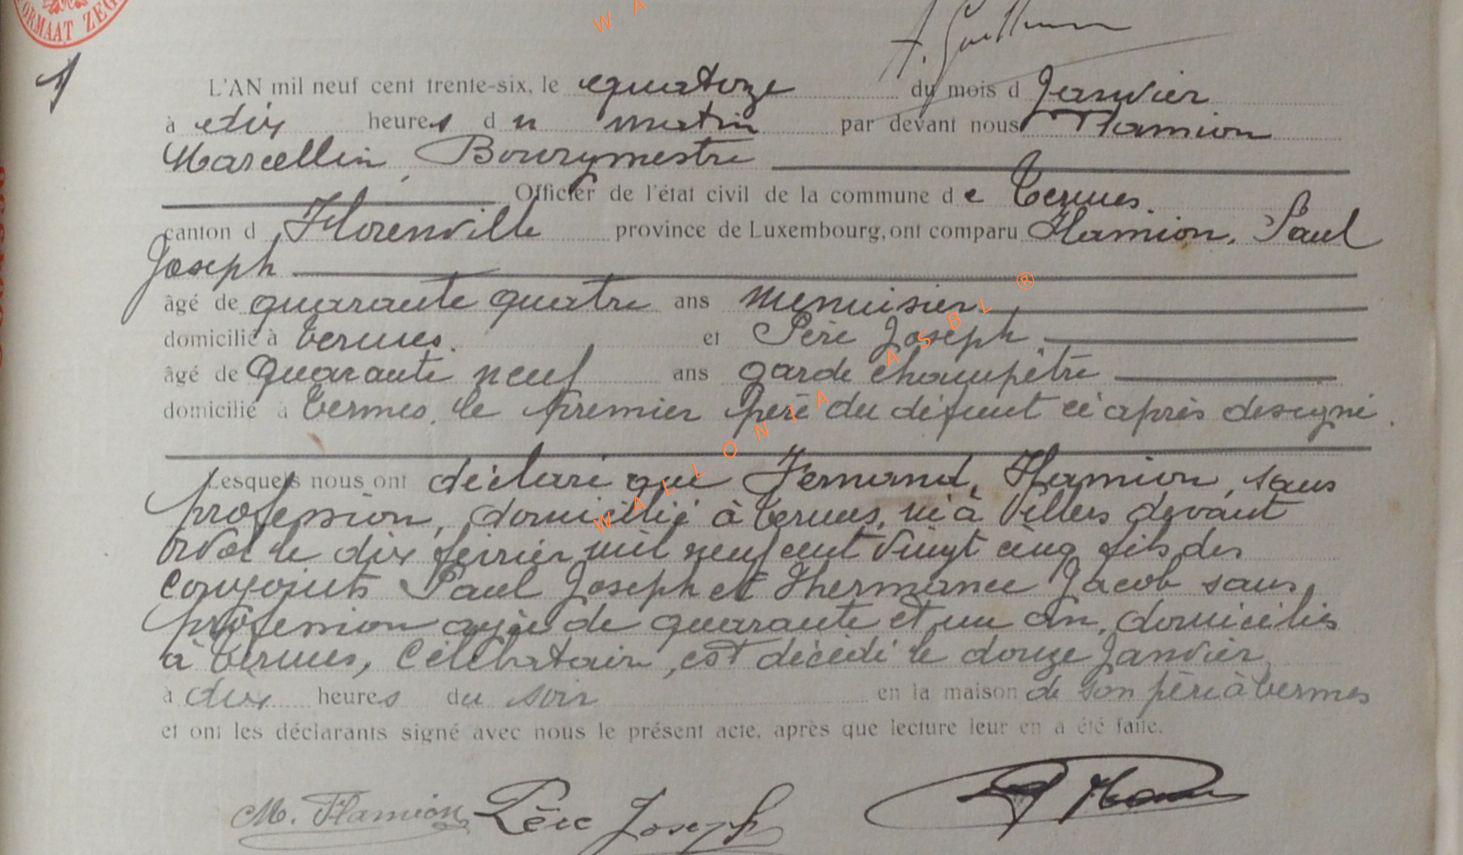 ORMAAT ZEG
1
L'AN mil neuf cent trente-six, le quatorze du mois d Janvier
à dix heures du matin par devant nous Flamion
Marcellin, Bourgmestre
Officier de l'état civil de la commune de Termes.
canton d Florenville province de Luxembourg, ont comparu Flamion, Paul
Joseph
âgé de quarante quatre ans menuisier
domicilié à Termes. et Père Joseph
âgé de quarante neuf ans garde champêtre
domicilié à Termes, le premier père du défunt ci après designé.
Lesquels nous ont déclaré que Fernand, Flamion, sans
profession, domicilié à Termes, né à Villers devant
Orval le dix février mil neuf cent vingt cinq fils des
conjoints Paul Joseph et Hermance Jacob sans
profession agée de quarante et un an, domiciliés
à Termes, Célibataire, est décédé le douze Janvier
à dix heures du soir en la maison de son père à Termes
et ont les déclarants signé avec nous le présent acte, après que lecture leur en a été faite.
M. Flamion Père Joseph
WALLONIA ASBL ®
W A